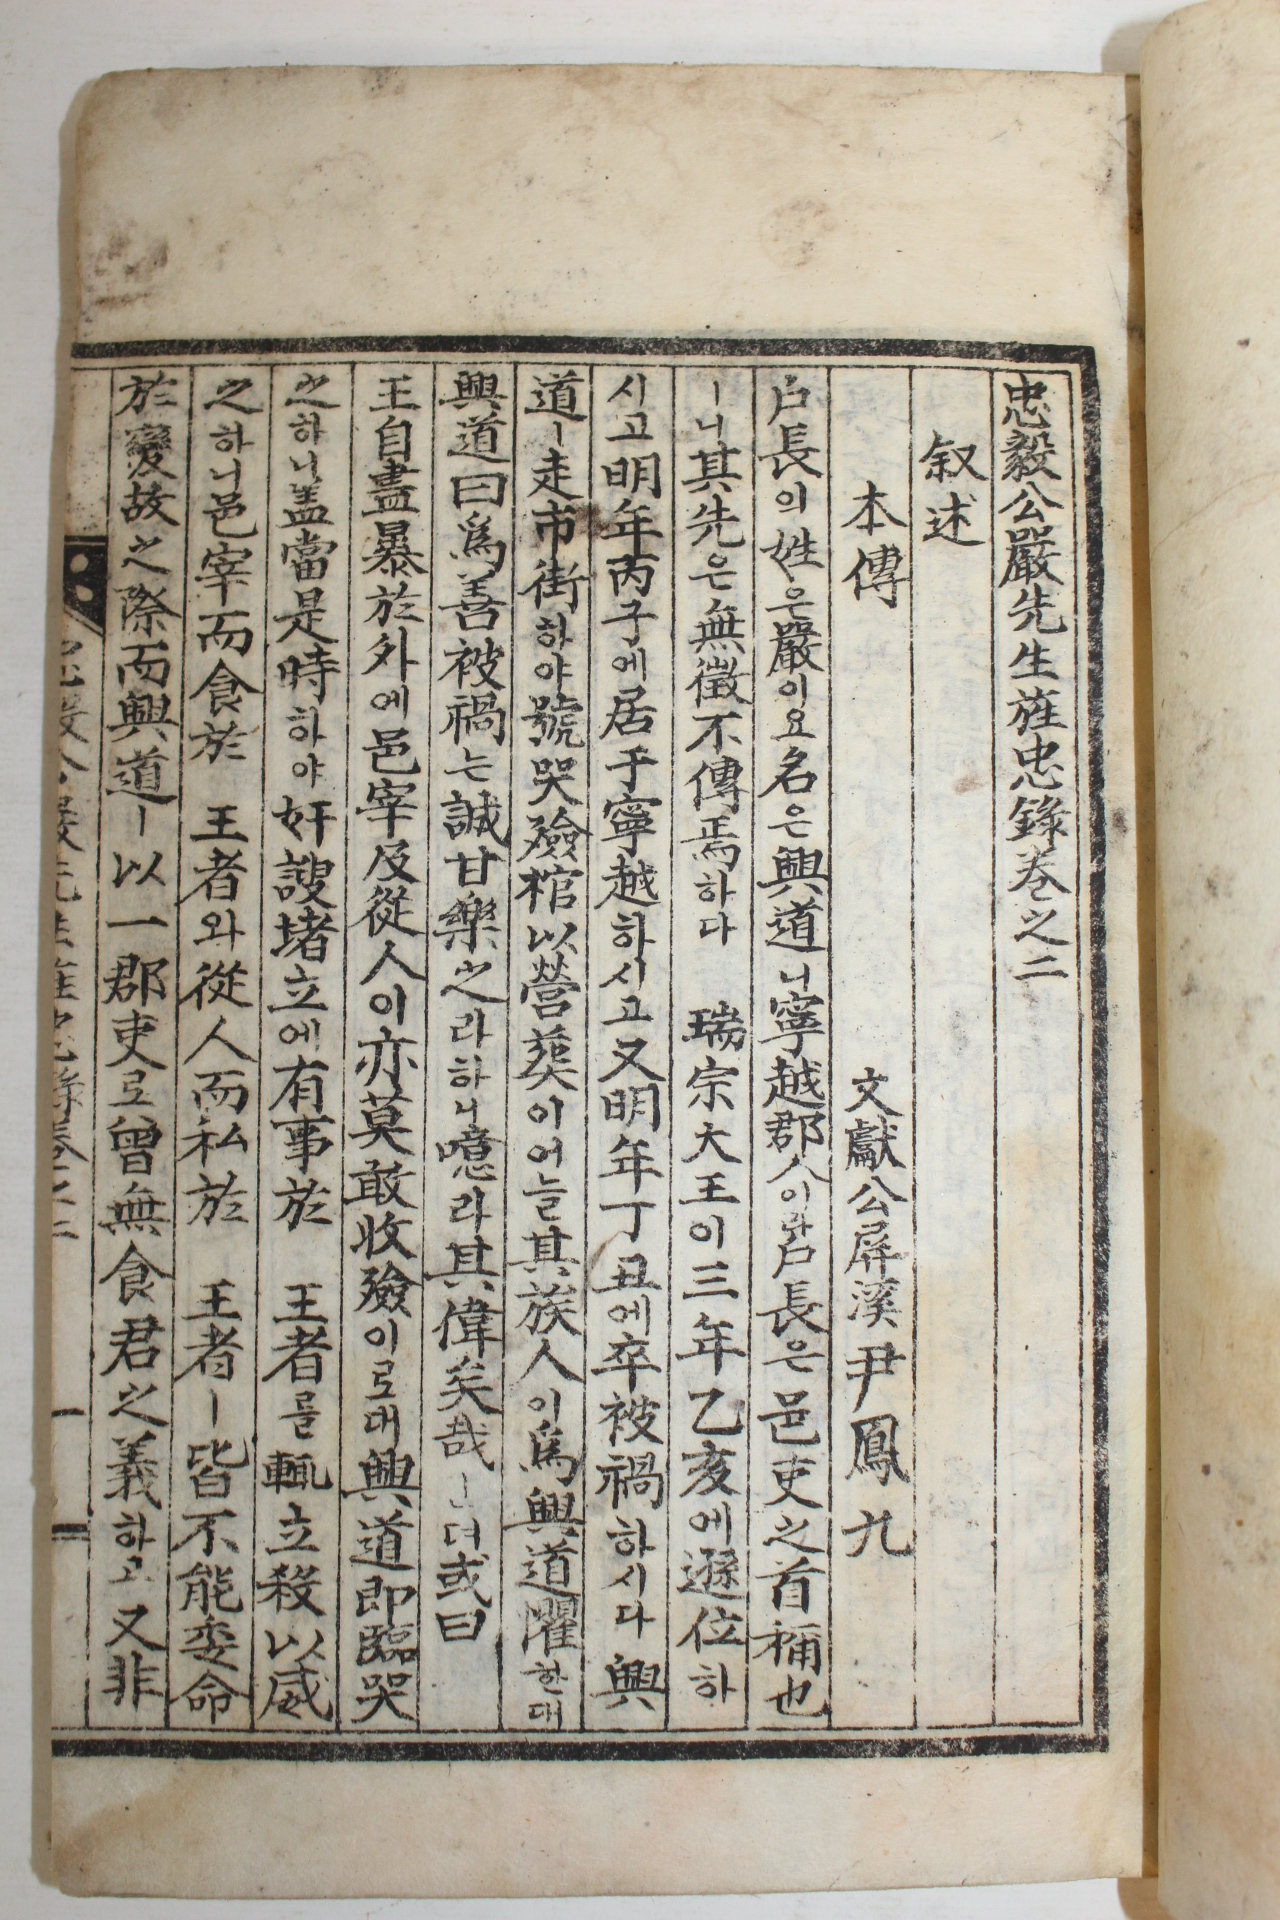 忠毅公嚴先生旌忠錄卷之二
叙述
本傳 文獻公屛溪尹鳳九
戶長의姓은嚴이요名은興道니寧越郡人이라戶長은邑吏之首稱也
ㅣ니其先은無徵不傳焉하다 瑞宗大王이三年乙亥에遜位하
시고明年丙子에居于寧越하시고又明年丁丑에卒被禍하시다興
道ㅣ走市街하야號哭殮棺以營葬이어늘其族人이爲興道懼한대
興道曰爲善被禍는誠甘樂之라하니噫라其偉矣哉ㅣㄴ뎌或曰
王自盡暴於外에邑宰及從人이亦莫敢收殮이로대興道卽臨哭
之하니盖當是時하야奸謏堵立에有事於 王者를輒立殺以威
之하니邑宰而食於 王者와從人而私於 王者ㅣ皆不能委命
於變故之際而興道ㅣ以一郡吏로曾無食君之義하고又非
忠毅公嚴先生旌忠錄卷之二 一